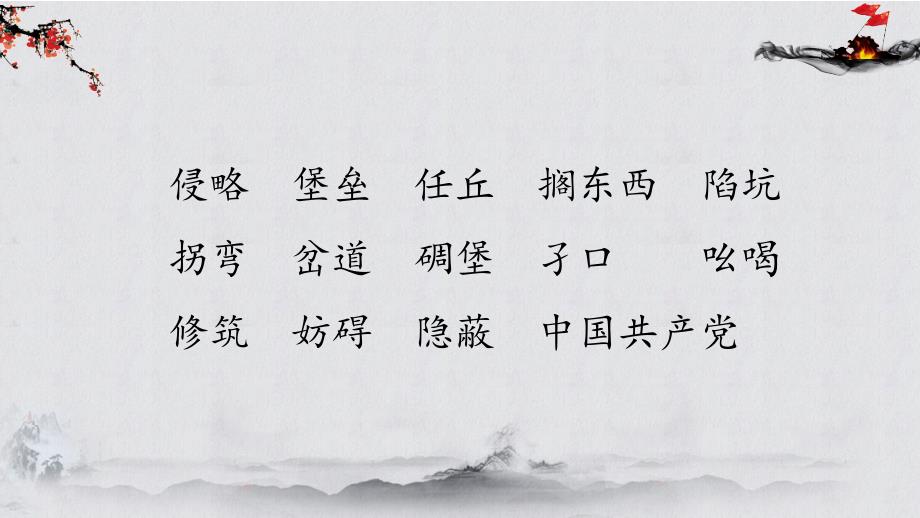 侵略 堡垒 任丘 搁东西 陷坑
拐弯 岔道 碉堡 孑口 吆喝
修筑 妨碍 隐蔽 中国共产党